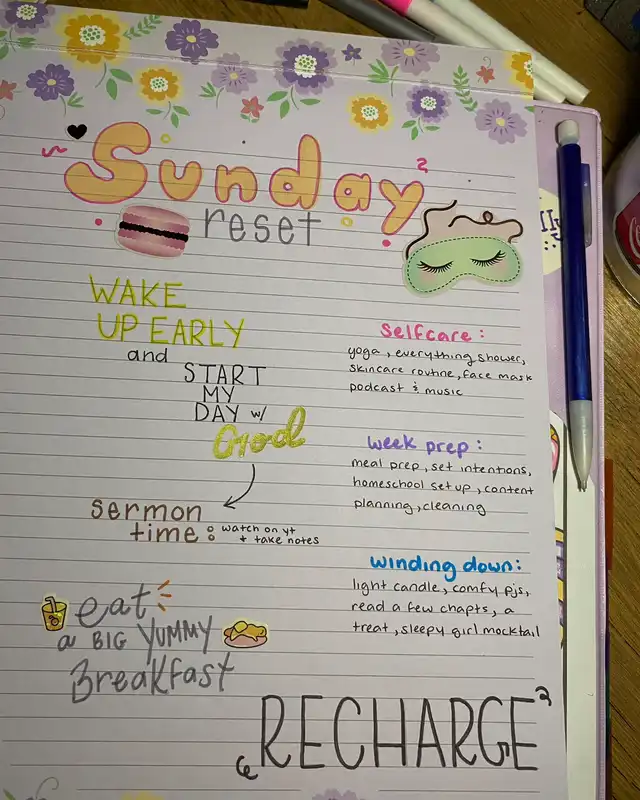 Sunday
reset
WAKE
UP EARLY
and
START
MY
DAY w/
God
sermon
time: watch on yt
+ take notes
eat
a BIG YUMMY
Breakfast
selfcare:
yoga, everything shower,
skincare routine, face mask
podcast & music
week prep:
meal prep, set intentions,
homeschool setup, content
planning, cleaning
winding down:
light candle, comfy pjs,
read a few chapts, a
treat, sleepy girl mocktail
RECHARGE